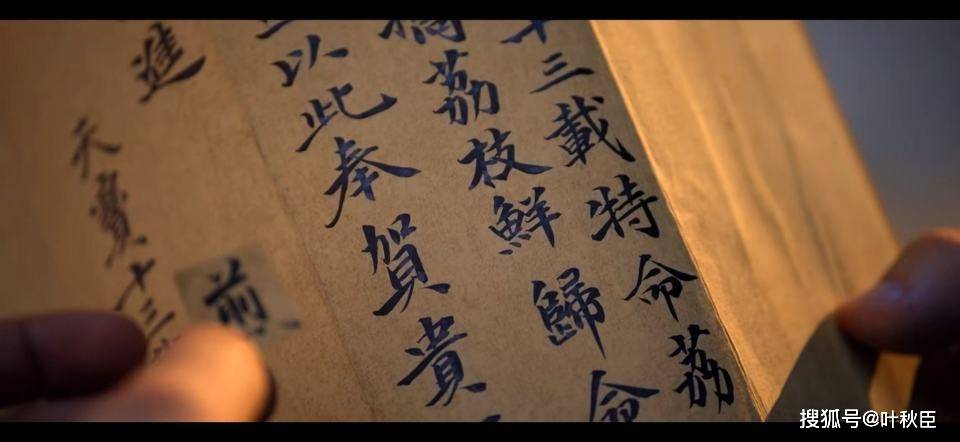 十三載特命荔
摘荔枝鮮歸命
以此奉賀貴
進
煎
天寶十三
搜狐号@叶秋臣